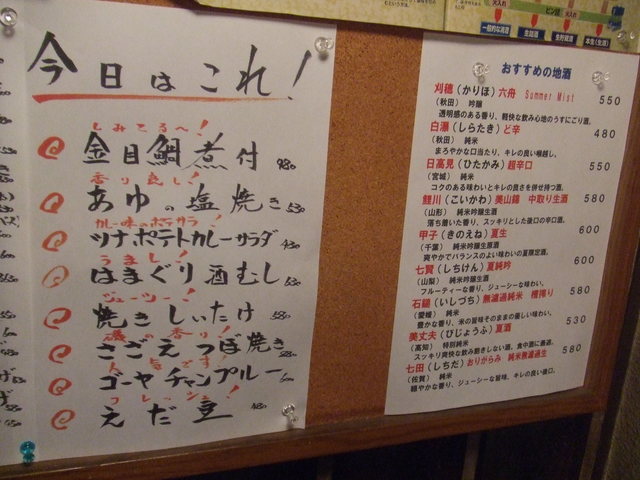 今日はこれ!
しみてる~!
金目鯛煮付 980
香り良し!
あゆの塩焼き 530
カレー味のポテサラ!
ツナポテトカレーサラダ 430
うましっ!
はまぐり酒むし
ジューシー!
焼きしいたけ
磯の香り!
さざえつぼ焼き
人気です!
ゴーヤチャンプルー
フレッシュ!
えだ豆 480
火入れ
一般的な清酒
生詰酒
生貯蔵酒
本生(生酒)
おすすめの地酒
刈穂(かりほ)六舟 Summer Mist 550
(秋田) 吟醸
透明感のある香り、軽快な飲み心地のうすにごり酒。
白瀑(しらたき)ど辛 480
(秋田) 純米
まろやかな口当たり、キレの良い喉越し。
日高見(ひたかみ)超辛口 550
(宮城) 純米
コクのある味わいとキレの良さを併せ持つ酒。
鯉川(こいかわ)美山錦 中取り生酒 580
(山形) 純米吟醸生酒
落ち着いた香り、スッキリとした後口の辛口酒。
甲子(きのえね)夏生 600
(千葉) 純米吟醸生原酒
爽やかでバランスのよい味わいの夏限定酒。
七賢(しちけん)夏純吟 600
(山梨) 純米吟醸生酒
フルーティーな香り、ジューシーな味わい。
石鎚(いしづち)無濾過純米 槽搾り 580
(愛媛) 純米
豊かな香り、米の旨味そのままの優しい味わい。
美丈夫(びじょうふ)夏酒 530
(高知) 特別純米
スッキリ爽快な飲み飽きしない酒。食中酒に最適。
七田(しちだ)おりがらみ 純米無濾過生 580
(佐賀) 純米
穏やかな香り、ジューシーな旨味、キレの良い後口。